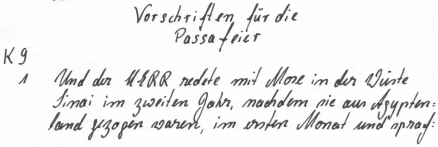 Vorschriften für die
Passafeier
K 9
1 Und der HERR redete mit Mose in der Wüste
Sinai im zweiten Jahr, nachdem sie aus Ägypten=
land gezogen waren, im ersten Monat und sprach: